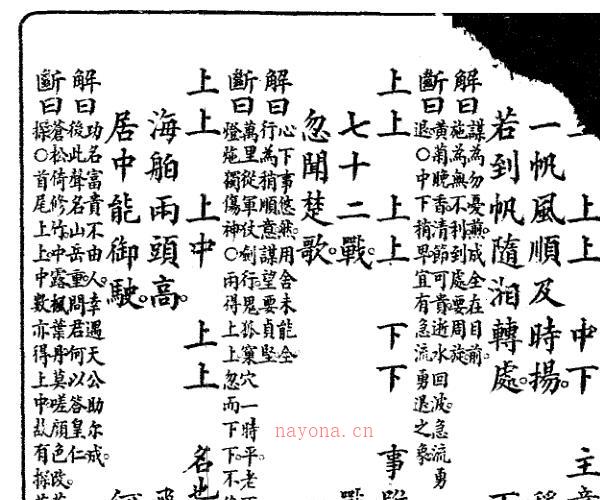 上 上上 中下 主意
一帆風順及時揚。
若到帆隨湘轉處。下
解曰
謀為勿憂成全在目前
施為無不利到處要周旋。
斷曰
黃菊晚香清節可貴逝水回波。急流勇
退〇中下稍畀宜有急流勇退之象
上上 上上 下下 事
七十二戰。
忽聞楚歌。
解曰
心下事悠然。用舍未能全
行為稍順意謀望要貞堅
斷曰
萬里從軍仗劍行。狐窠穴一特平。老
燈炧獨傷神〇兩得上上忽而下下。不
上上 上中 上上 名也
海舶兩頭高。
居中能御駛。
解曰
功名富貴不由人。幸遇天公助爾成。
後此聲名山岳重。問君何以答皇仁。
斷曰
蒼松倚修竹中露楓葉丹莫嗟顏色改。
探〇首尾上上中數亦得上中故有探
nayona.cn